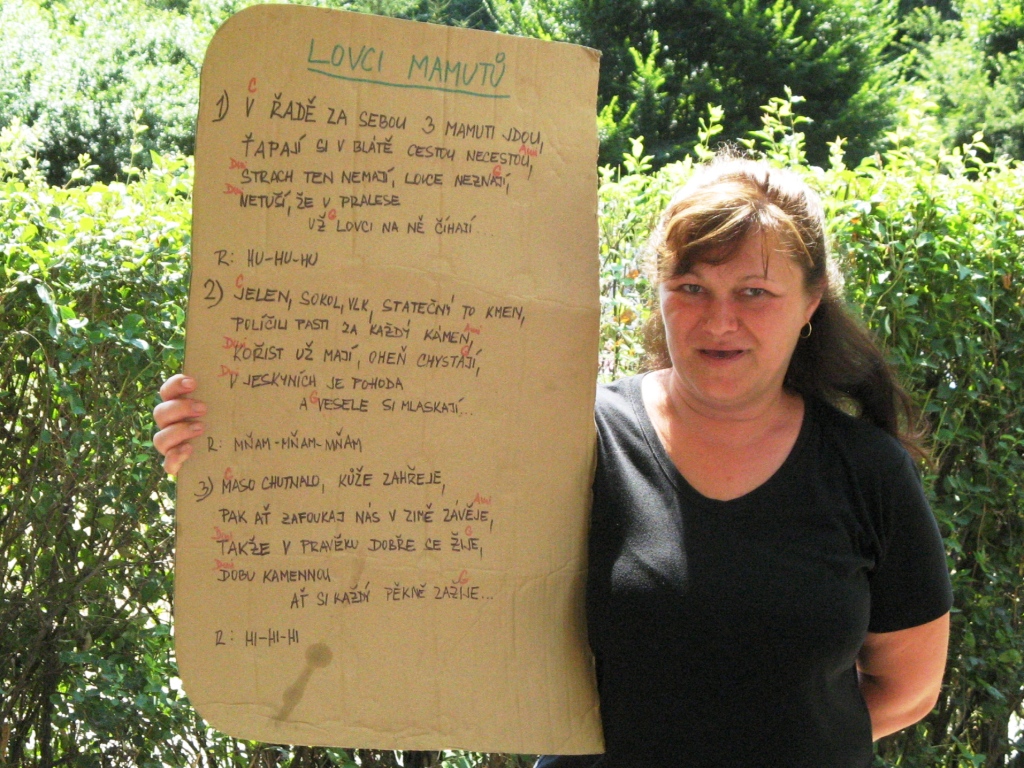 LOVCI MAMUTŮ
C
1) V ŘADĚ ZA SEBOU 3 MAMUTI JDOU,
Ami
ŤAPAJÍ SI V BLÁTĚ CESTOU NECESTOU,
Dmi G
STRACH TEN NEMAJÍ, LOVCE NEZNAJÍ,
Dmi
NETUŠÍ, ŽE V PRALESE
G
UŽ LOVCI NA NĚ ČÍHAJÍ...
R: HU-HU-HU
C
2) JELEN, SOKOL, VLK, STATEČNÝ TO KMEN,
Ami
POLÍČILI PASTI ZA KAŽDÝ KÁMEN,
Dmi G
KOŘIST UŽ MAJÍ, OHEŇ CHYSTAJÍ,
Dmi
V JESKYNÍCH JE POHODA
G
A VESELE SI MLASKAJÍ...
R: MŇAM-MŇAM-MŇAM
C
3) MASO CHUTNALO, KŮŽE ZAHŘEJE,
Ami
PAK AŤ ZAFOUKAJ NÁS V ZIMĚ ZÁVĚJE,
Dmi G
TAKŽE V PRAVĚKU DOBŘE SE ŽIJE,
Dmi
DOBU KAMENNOU
G
AŤ SI KAŽDÝ PĚKNĚ ZAŽIJE...
R: HI-HI-HI